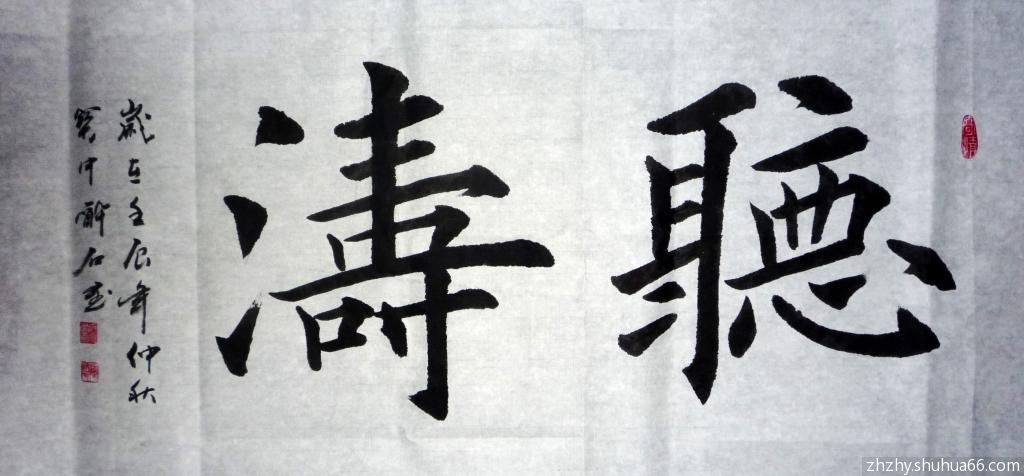 聽濤
歲在壬辰年仲秋
石
zhzhy.shuhua66.com